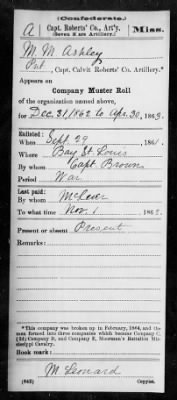 (Confederate.)
A | Capt. Roberts' Co., Art'y. | Miss.
(Seven Stars Artillery.)
M. M. Ashley
Pvt., Capt. Calvit Roberts' Co. Artillery.*
Appears on
Company Muster Roll
of the organization named above,
for Dec. 31/1862 to Apr. 30, 1863.
Enlisted:
When Sept. 29, 1861.
Where Bay St. Louis
By whom Capt. Brown
Period War
Last paid:
By whom
To what time Nov. 1, 1862.
Present or absent Present
Remarks:
*This company was broken up in February, 1864, and the
men formed into three companies which became Company C,
(2d) Company D, and Company E, Moorman's Battalion Mis-
sissippi Cavalry.
Book mark:
M. Leonard
(642) Copyist.